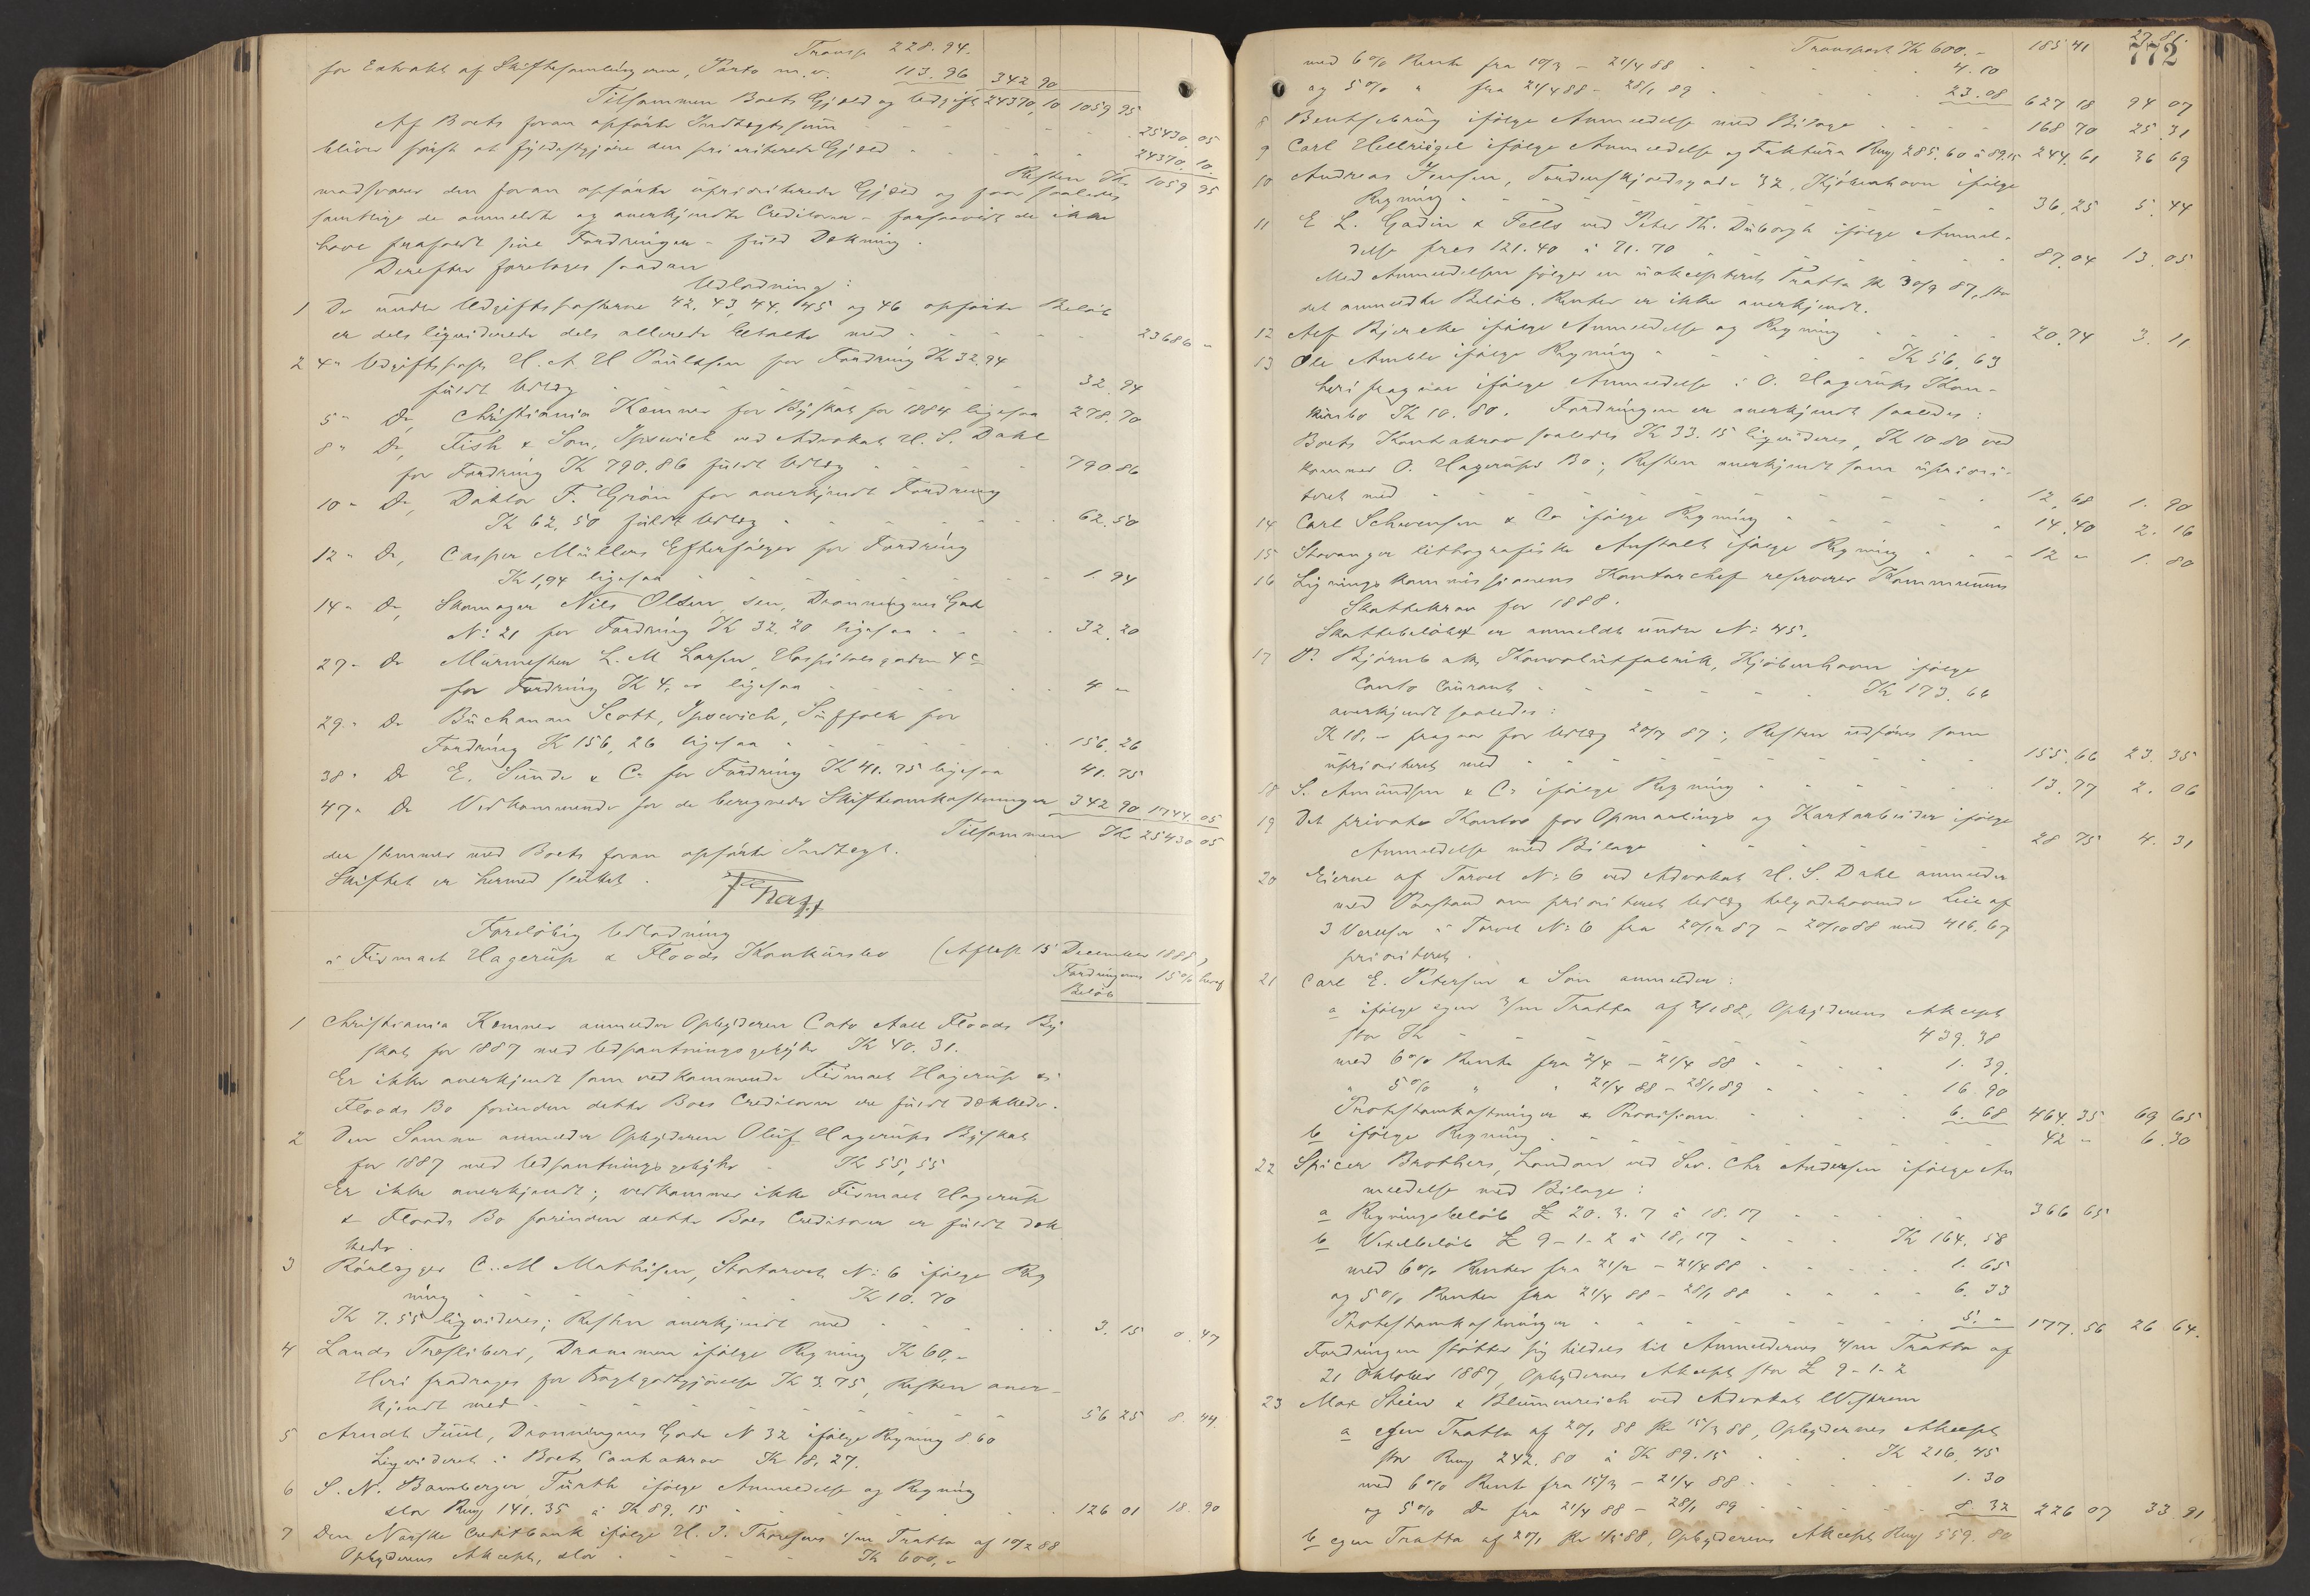 Transp 228.94.
for Extrakt af Skiftesamlingerne, Porto m.v. 113.96 342 90
Tilsammen Boets Gjæld og Udgift 24370,10 1059 95
Af Boets foran opførte Indtægtssum 25430.05
bliver først at fyldestgjøre den prioriterede Gjæld 24370.10.
Resten Kr 1059 95
modsvarer den foran opførte uprioriterede Gjæld og faar saaledes
samtlige de anmeldte og anerkjendte Creditorer - forsaavidt de ikke
have frafaldt sine Fordringer - fuld Dækning.
Derefter foretages saadan
Udlodning:
1 De under Udgiftsposterne 42, 43, 44, 45 og 46 opførte Beløb
er dels liqviderede dels allerede betalte med 23686 "
2 4" Udgiftspost H. A. H Paulsen for Fordring Kr 32.94
fuldt Udlæg 32.94
5" Do, Christiania Kæmner for Byskat for 1884 ligesaa 278.70
8" Do, Fish & Son, Ipswich ved Advokat H. S. Dahl
for Fordring Kr 790.86 fuldt Udlæg 790 86
10" Do, Doktor F. Grøn for anerkjendt Fordring
Kr 62.50 fuldt Udlæg 62.50
12" Do, Casper Müllers Efterfølger for Fordring
Kr 1,94 ligesaa 1.94
14" Do, Skomager Nils Olsen sen, Dronningens Gade
No: 21 for Fordring Kr 32.20 ligesaa 32.20
27" Do Murmester L. M Larsen, Hospitalsgaden 4c
for Fordring Kr 4, " ligesaa 4 "
29" Do Buchanan Scott, Ipswich, Suffolk for
Fordring Kr 156,26 ligesaa 156.26
38" Do E. Sunde & Co for Fordring Kr 41.75 ligesaa 41.75
47" Do Vedkommende for de beregnede Skifteomkostninger 342 90 1744.05
Tilsammen Kr 25430 05
der stemmer med Boets foran opførte Indtægt.
Skiftet er hermed sluttet.
Foreløbig Udlodning
i Firmaet Hagerup & Floods Konkursbo (Afsluttet 15 December 1888)
Fordringens Beløb 15% heraf
1 Christiania Kæmner anmelder Opbyderen Cato Aall Floods By
skat for 1887 med Udpantningsgebyhr Kr 40.31.
Er ikke anerkjendt som vedkommende Firmaet Hagerup &
Floods Bo forinden dette Boes Creditorer ere fuldt dækkede.
2 Den Samme anmelder Opbyderen Oluf Hagerups Byskat
for 1887 med Udpantningsgebyhr Kr 55,55
Er ikke anerkjendt; vedkommer ikke Firmaet Hagerup
& Floods Bo forinden dette Boes Creditorer er fuldt dæk
kede.
3 Rørlægger C. M Mathisen, Stortorvet No: 6 ifølge Reg
ning Kr 10.70
Kr 7.55 liqvideres; Resten anerkjendt med 3.15 0.47
4 Lands Træsliberi, Drammen ifølge Regning Kr 60,"
Heri fradrages for Fragtgodtgjørelse Kr 3.75, Resten aner-
kjendt med 56 25 8.44.
5 Arndt Juul, Dronningens Gade No 32 ifølge Regning 8.60
Liqvideret i Boets Contokrav Kr 18,27.
6 S. N. Bamberger, Fürth ifølge Anmeldelse og Regning
stor Rmg 141.35 à Kr 89.15 126 01 18.90
7 Den Norske Creditbank ifølge H. J. Thoresens Tratta af 10/2 88
Opbyderens Akcept, stor Kr 600,"
772
Transport Kr 600.- 185 41 27.81.
med 6% Rente fra 10/3 - 21/4 88 4.10
og 5% " fra 21/4 88 - 28/1 89 23.08 627 18 94 07
8 Bentsebrug ifølge Anmeldelse med Bilage 168 70 25.31
9 Carl Hellriegel ifølge Anmeldelse og Faktura Rmg 285.60 à 89.15 244.61 36 69
10 Andreas Jensen, Tordenskjoldsgade 32, Kjøbenhavn ifølge
Regning 36,25 5.44
11 E L. Gadin & Fells ved Peter Th. Duborgh ifølge Anmel-
delse frcs 121.40 à 71.70 87.04 13.05
Med Anmeldelsen følger en uakcepteret Tratta pr 30/9 87, stor
det anmeldte Beløb. Renter er ikke anerkjendt.
12 Alf Bjercke ifølge Anmeldelse og Regning 20.74 3.11
13 Ole Ambli ifølge Regning Kr 56,63
heri fragaar ifølge Anmeldelse i O. Hagerups Kon-
kursbo Kr 10.80. Fordringen er anerkjendt saaledes:
Boets Kontokrav saaledes Kr 33.15 liqvideres, Kr 10.80 ved
kommer O. Hagerups Bo; Resten anerkjendt som upriori-
teret med 12,68 1.90
14 Carl Schwensen & Co ifølge Regning 14.40 2.16
15 Stavanger lithografiske Anstalt ifølge Regning 12 " 1.80
16 Ligningskommissionens Kontorchef reserverer Kommunens
Skattekrav for 1888.
Skattebeløbet er anmeldt under No: 45.
17 P. Bjørnbak, Konvolutfabrik, Kjøbenhavn ifølge
Conto Courant Kr 173.66
anerkjendt saaledes:
Kr 18, - fragaar for Udlæg 20/7 87; Resten udføres som
uprioriteret med 155.66 23.35
18 S. Amundsen & Co ifølge Regning 13.77 2.06
19 Det private Kontor for Opmaalings og Kartarbeider ifølge
Anmeldelse med Bilage 28 75 4.31
20 Eierne af Torvet No: 6 ved Advokat H. S. Dahl anmelder
med Paastand om prioriteret Udlæg tilgodehavende Leie af
3 Værelser i Torvet No: 6 fra 20/12 87 - 20/10 88 med 416,67
prioriteret.
21 Carl E. Petersen & Søn anmelder:
a ifølge egen 3/m Tratta af 2/1 88, Opbyderens Akcept
stor Kr 439.38
med 6% Rente fra 2/4 - 21/4 88 1.39.
" 5% " " 21/4 88 - 28/1 89 16 90
Protestomkostninger & Provision 6.68 464.35 69 65
b ifølge Regning 42 " 6.30
22 Spicer Brothers, London ved Sev. Chr Andersen ifølge An
meldelse med Bilage:
a Regningsbeløb £ 20.3.7 à 18.17 366 65
b Vexelbeløb £ 9-1-2 à 18,17 Kr 164.58
med 6% Renter fra 21/2 - 21/4 88 1.65
og 5% Renter fra 21/4 88 - 28/1 88 6.33
Protestomkostninger 5." 177.56 26 64.
Fordringen støtter sig tildels til Anmelderens 4/m Tratta af
21 Oktober 1887, Opbydernes Akcept stor £ 9-1-2
23 Max Stein & Blumenreich ved Advokat Wistrem
a egen Tratta af 20/1 88 pr 15/3 88, Opbydernes Akcept
stor Rmg 242.80 à Kr 89.15 Kr 216.45
med 6% Rente fra 15/3 - 21/4 88 1.30
og 5% Do fra 21/4 88 - 28/1 89 8.32 226 07 33.91
b egen Tratta af 20/1 pr 88, Opbyderens Akcept Rmg 559.80